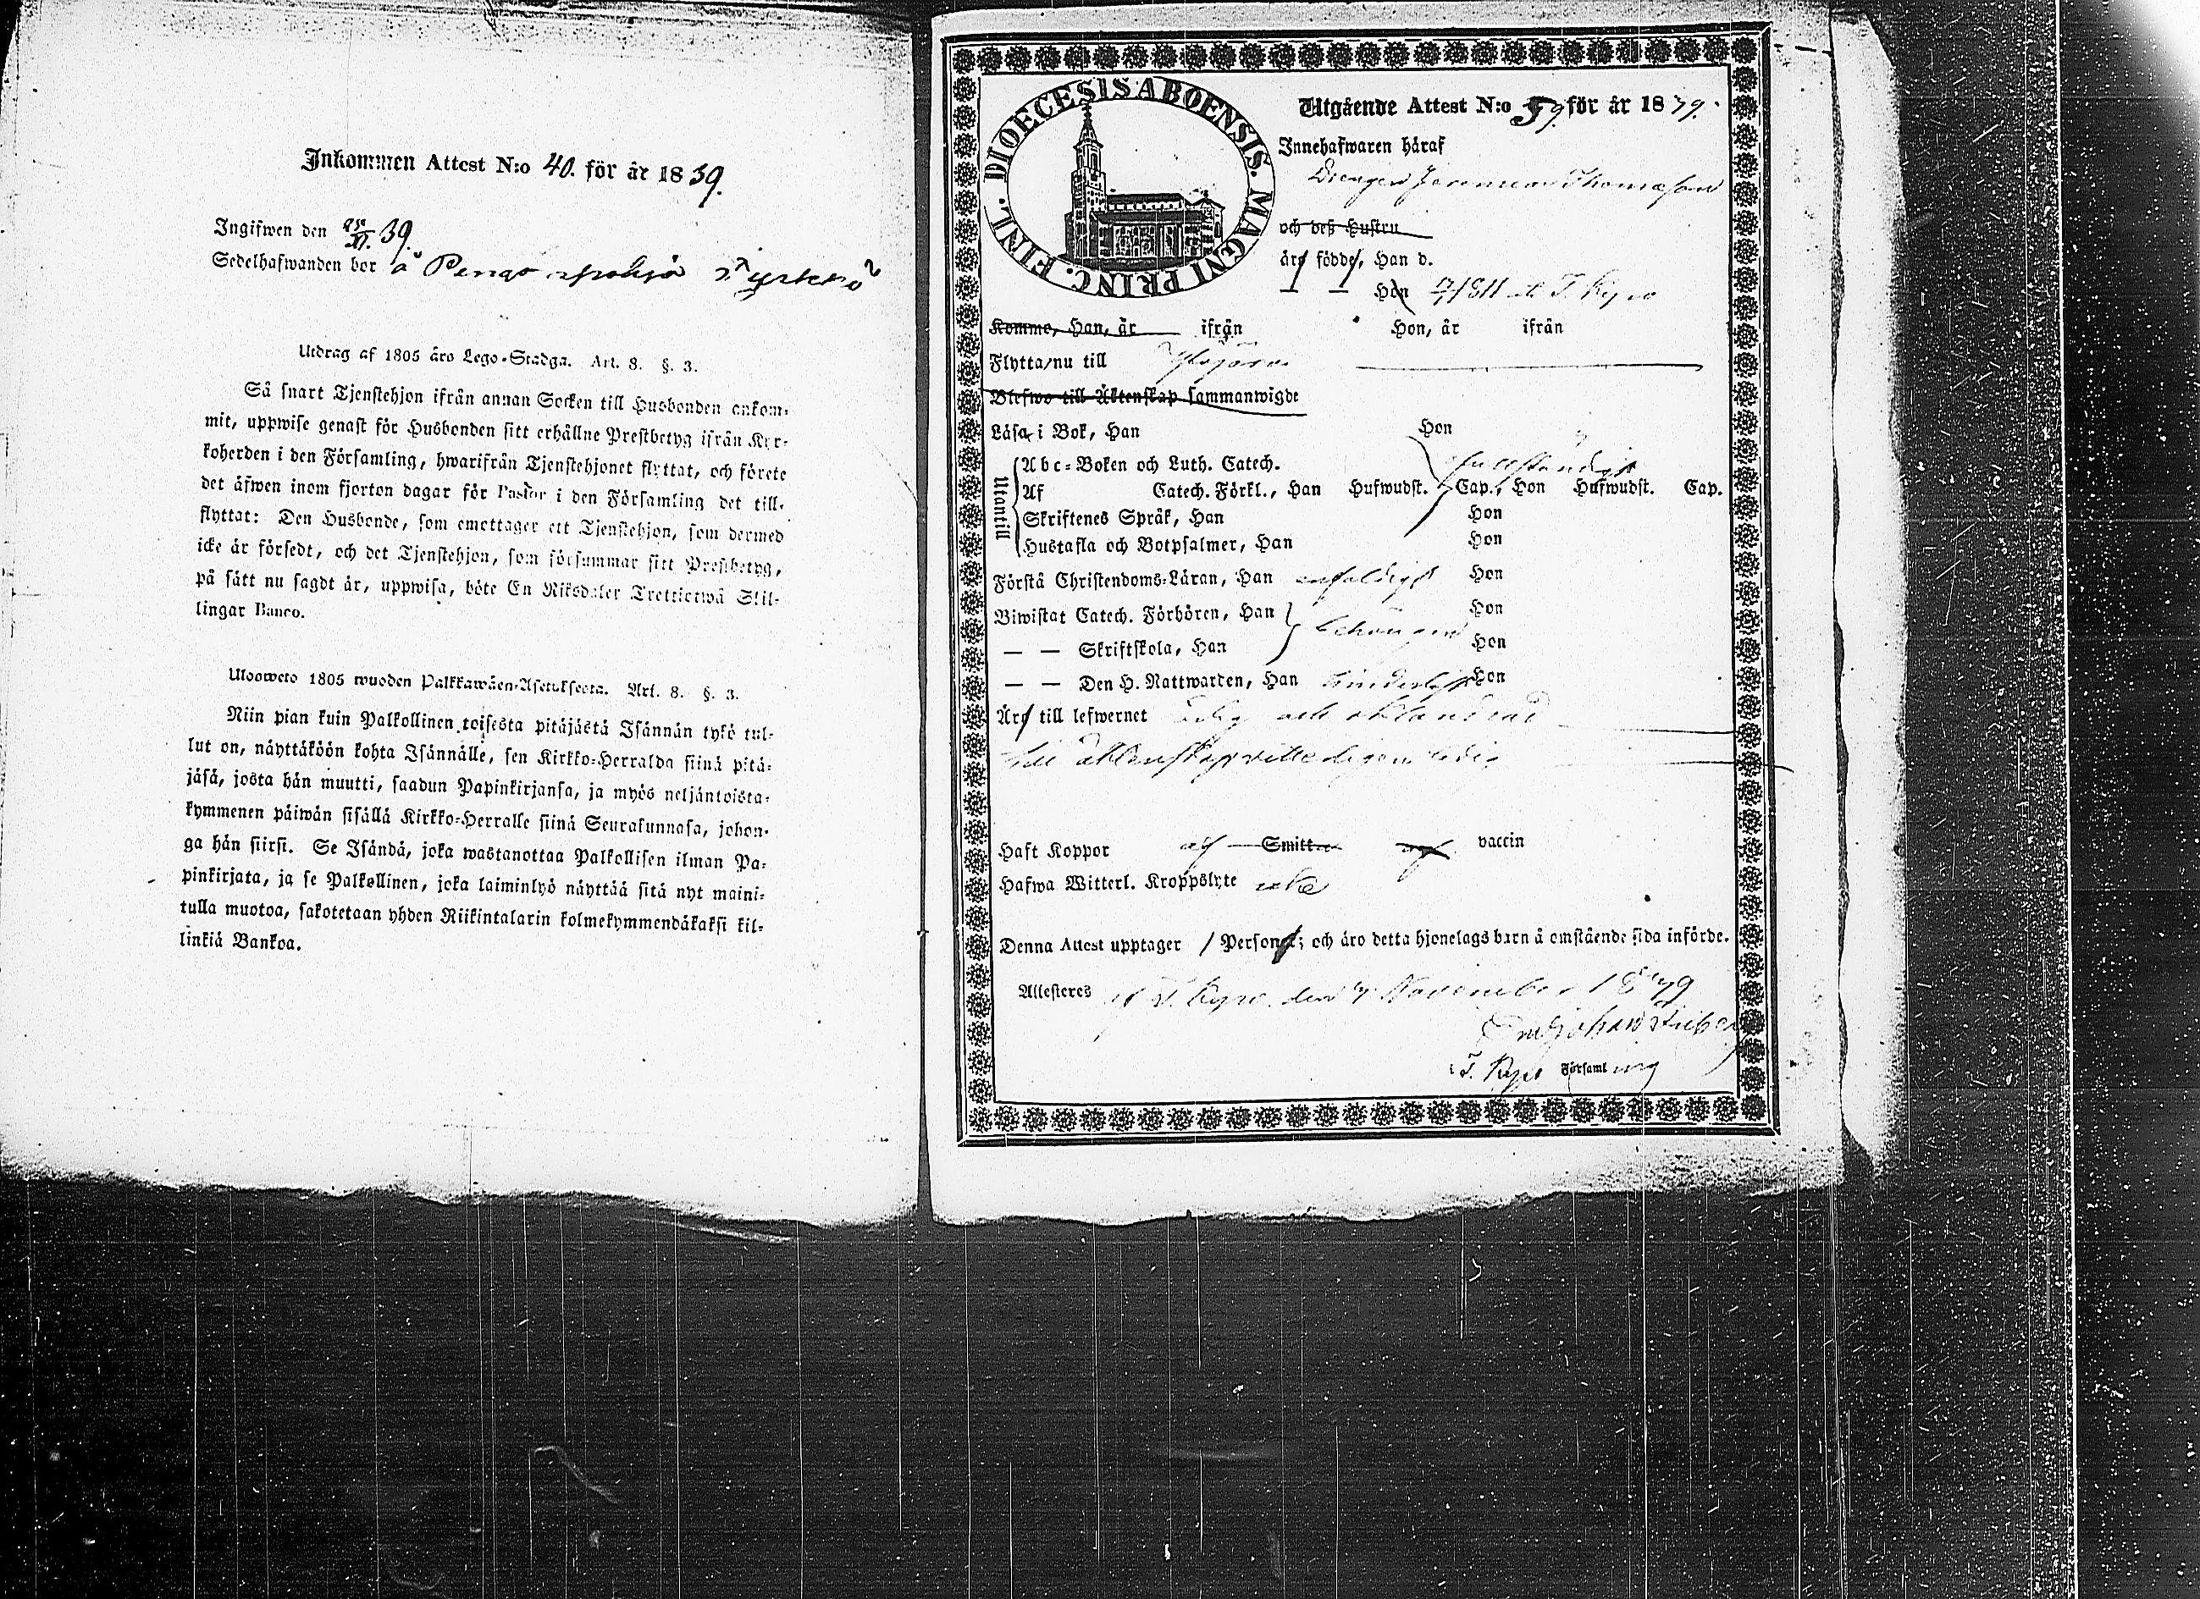 Inkommen Attest N:o 40. för år 1839.
Ingifwen den 39.
Sedelhafwanden bor å
Utdrag af 1805 års Lego-Stadga. Art. 8. §. 3.
Så snart Tjenstehjon ifrån annan Socken till Husbonden ankom-
mit, uppwise genast för Husbonden sitt erhållne Prestbetyg ifrån Kyr-
koherden i den Församling, hwarifrån Tjenstehjonet flyttat, och förete
det äfwen inom fjorton dagar för Pastor i den Församling det till-
flyttat: Den Husbonde, som emottager ett Tjenstehjon, som dermed
icke är försedt, och det Tjenstehjon, som försummar sitt Prestbetyg,
på sätt nu sagdt är, uppwisa, böte En Riksdaler Trettiotwå Skil-
lingar Banco.
Ulosweto 1805 wuoden Palkkawäen-Asetuksesta. Art. 8. §. 3.
Niin pian kuin Palkollinen toisesta pitäjästä Isännän tykö tul-
lut on, näyttäköön kohta Isännälle, sen Kirkko-Herralda siinä pitä-
jäsä, josta hän muutti, saadun Papinkirjansa, ja myös neljäntoista-
kymmenen päiwän sisällä Kirkko-Herralle siinä Seurakunnasa, johon-
ga hän siirsi. Se Isändä, joka wastanottaa Palkollisen ilman Pa-
pinkirjata, ja se Palkollinen, joka laiminlyö näyttää sitä nyt maini-
tulla muotoa, sakotetaan yhden Riikintalarin kolmekymmendäkaksi kil-
linkiä Bankoa.
DIOECESIS ABOENSIS. MAGNI PRINC. FINL.
Utgående Attest N:o 59. för år 1839.
Innehafwaren häraf
Drengen Jeremias Thomasson
och deß Hustru
äro födde, Han d.
Hon 1811 i T. Kyro
Komme, Han, år ifrån Hon, år ifrån
Flytta nu till Ylöjärvi
Blefwo till Äktenskap sammanwigde
Läsa i Bok, Han Hon
Utantill
Abc-Boken och Luth. Catech. fullständigt
Af Catech. Förkl., Han Hufwudst. Cap., Hon Hufwudst. Cap.
Skriftenes Språk, Han Hon
Hustafla och Botpsalmer, Han Hon
Förstå Christendoms-Läran, Han enfaldigt Hon
Biwistat Catech. Förhören, Han Hon
— — Skriftskola, Han behörigen Hon
— — Den H. Nattwarden, Han Hon
Äro till lefwernet
till äktenskap ledig
Haft Koppor af Smitta af vaccin
Hafwa Witterl. Kroppslyte icke
Denna Attest upptager 1 Personer; och äro detta hjonelags barn å omstående sida införde.
Attesteres af T. Kyro den 7 November 1839
i T. Kyro Församling